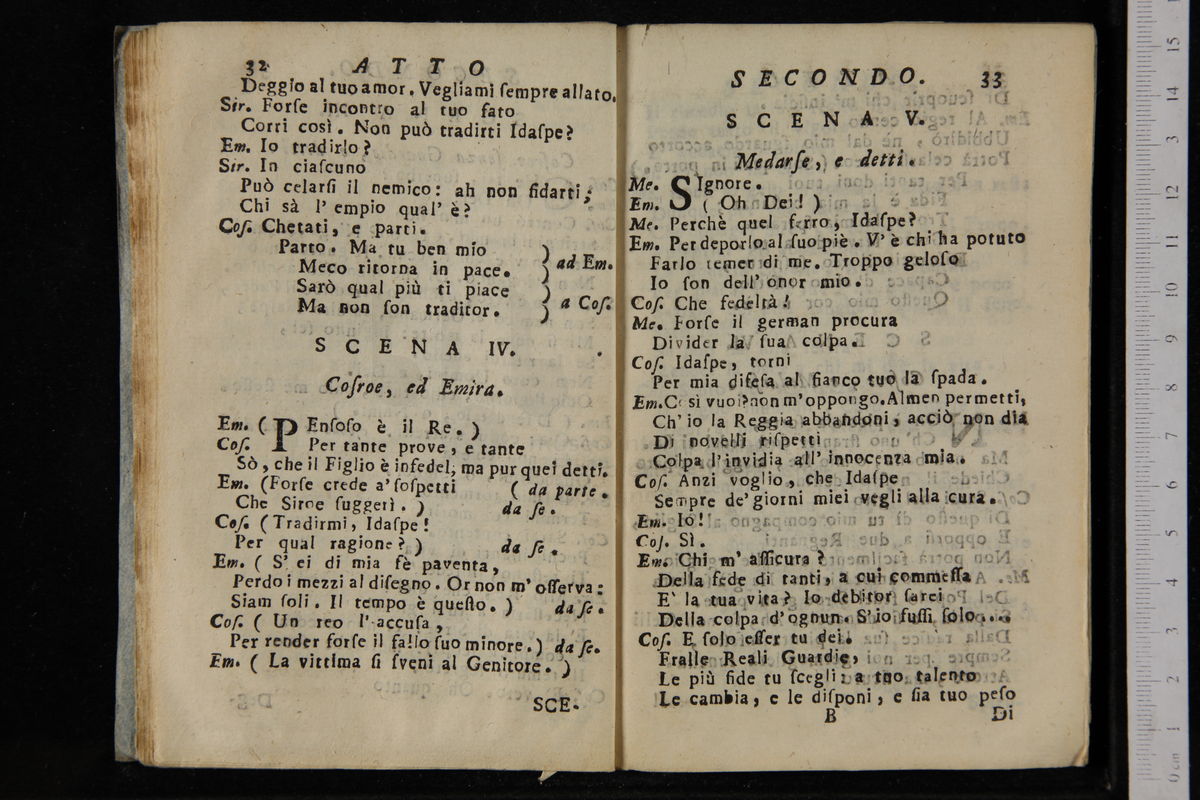 32 ATTO
Deggio al tuo amor. Vegliami ſempre allato.
Sir. Forſe incontro al tuo fato
Corri così. Non può tradirti Idaſpe?
Em. Io tradirlo?
Sir. In ciaſcuno
Può celarſi il nemico: ah non fidarti;
Chi sà l' empio qual' è?
Coſ. Chetati, e parti.
Parto. Ma tu ben mio
Meco ritorna in pace. } ad Em.
Sarò qual più ti piace
Ma non ſon traditor. } a Coſ.
SCENA IV.
Coſroe, ed Emira.
Em. ( PEnſoſo è il Re. )
Coſ. Per tante prove, e tante
Sò, che il Figlio è infedel; ma pur quei detti.
Em. (Forſe crede a' ſoſpetti ( da parte.
Che Siroe ſuggerì. ) da ſe.
Coſ. (Tradirmi, Idaſpe!
Per qual ragione? ) da ſe.
Em. ( S' ei di mia fè paventa,
Perdo i mezzi al diſegno. Or non m' oſſerva:
Siam ſoli. Il tempo è queſto. ) da ſe.
Coſ. ( Un reo l' accuſa,
Per render forſe il fallo ſuo minore. ) da ſe.
Em. ( La vittima ſi ſveni al Genitore. )
SCE-
SECONDO. 33
SCENA V.
Medarſe, e detti.
Me. SIgnore.
Em. ( Oh Dei! )
Me. Perchè quel ferro, Idaſpe?
Em. Per deporlo al ſuo piè. V' è chi ha potuto
Farlo temer di me. Troppo geloſo
Io ſon dell' onor mio.
Coſ. Che fedeltà!
Me. Forſe il german procura
Divider la ſua colpa.
Coſ. Idaſpe, torni
Per mia difeſa al fianco tuo la ſpada.
Em. Così vuoi? non m' oppongo. Almen permetti,
Ch' io la Reggia abbandoni, acciò non dia
Di novelli riſpetti
Colpa l' invidia all' innocenza mia.
Coſ. Anzi voglio, che Idaſpe
Sempre de' giorni miei vegli alla cura.
Em. Io!
Coſ. Sì.
Em. Chi m' aſſicura?
Della fede di tanti, a cui commeſſa
E' la tua vita? Io debitor ſarei
Della colpa d' ognun. S' io fuſſi ſolo....
Coſ. E ſolo eſſer tu dei.
Fralle Reali Guardie,
Le più fide tu ſcegli: a tuo talento
Le cambia, e le diſponi, e ſia tuo peſo
B Di